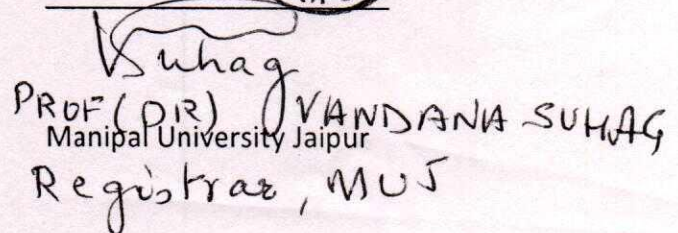 VSuhag
PROF (DR) VANDANA SUHAG
Manipal University Jaipur
Registrar, MUJ